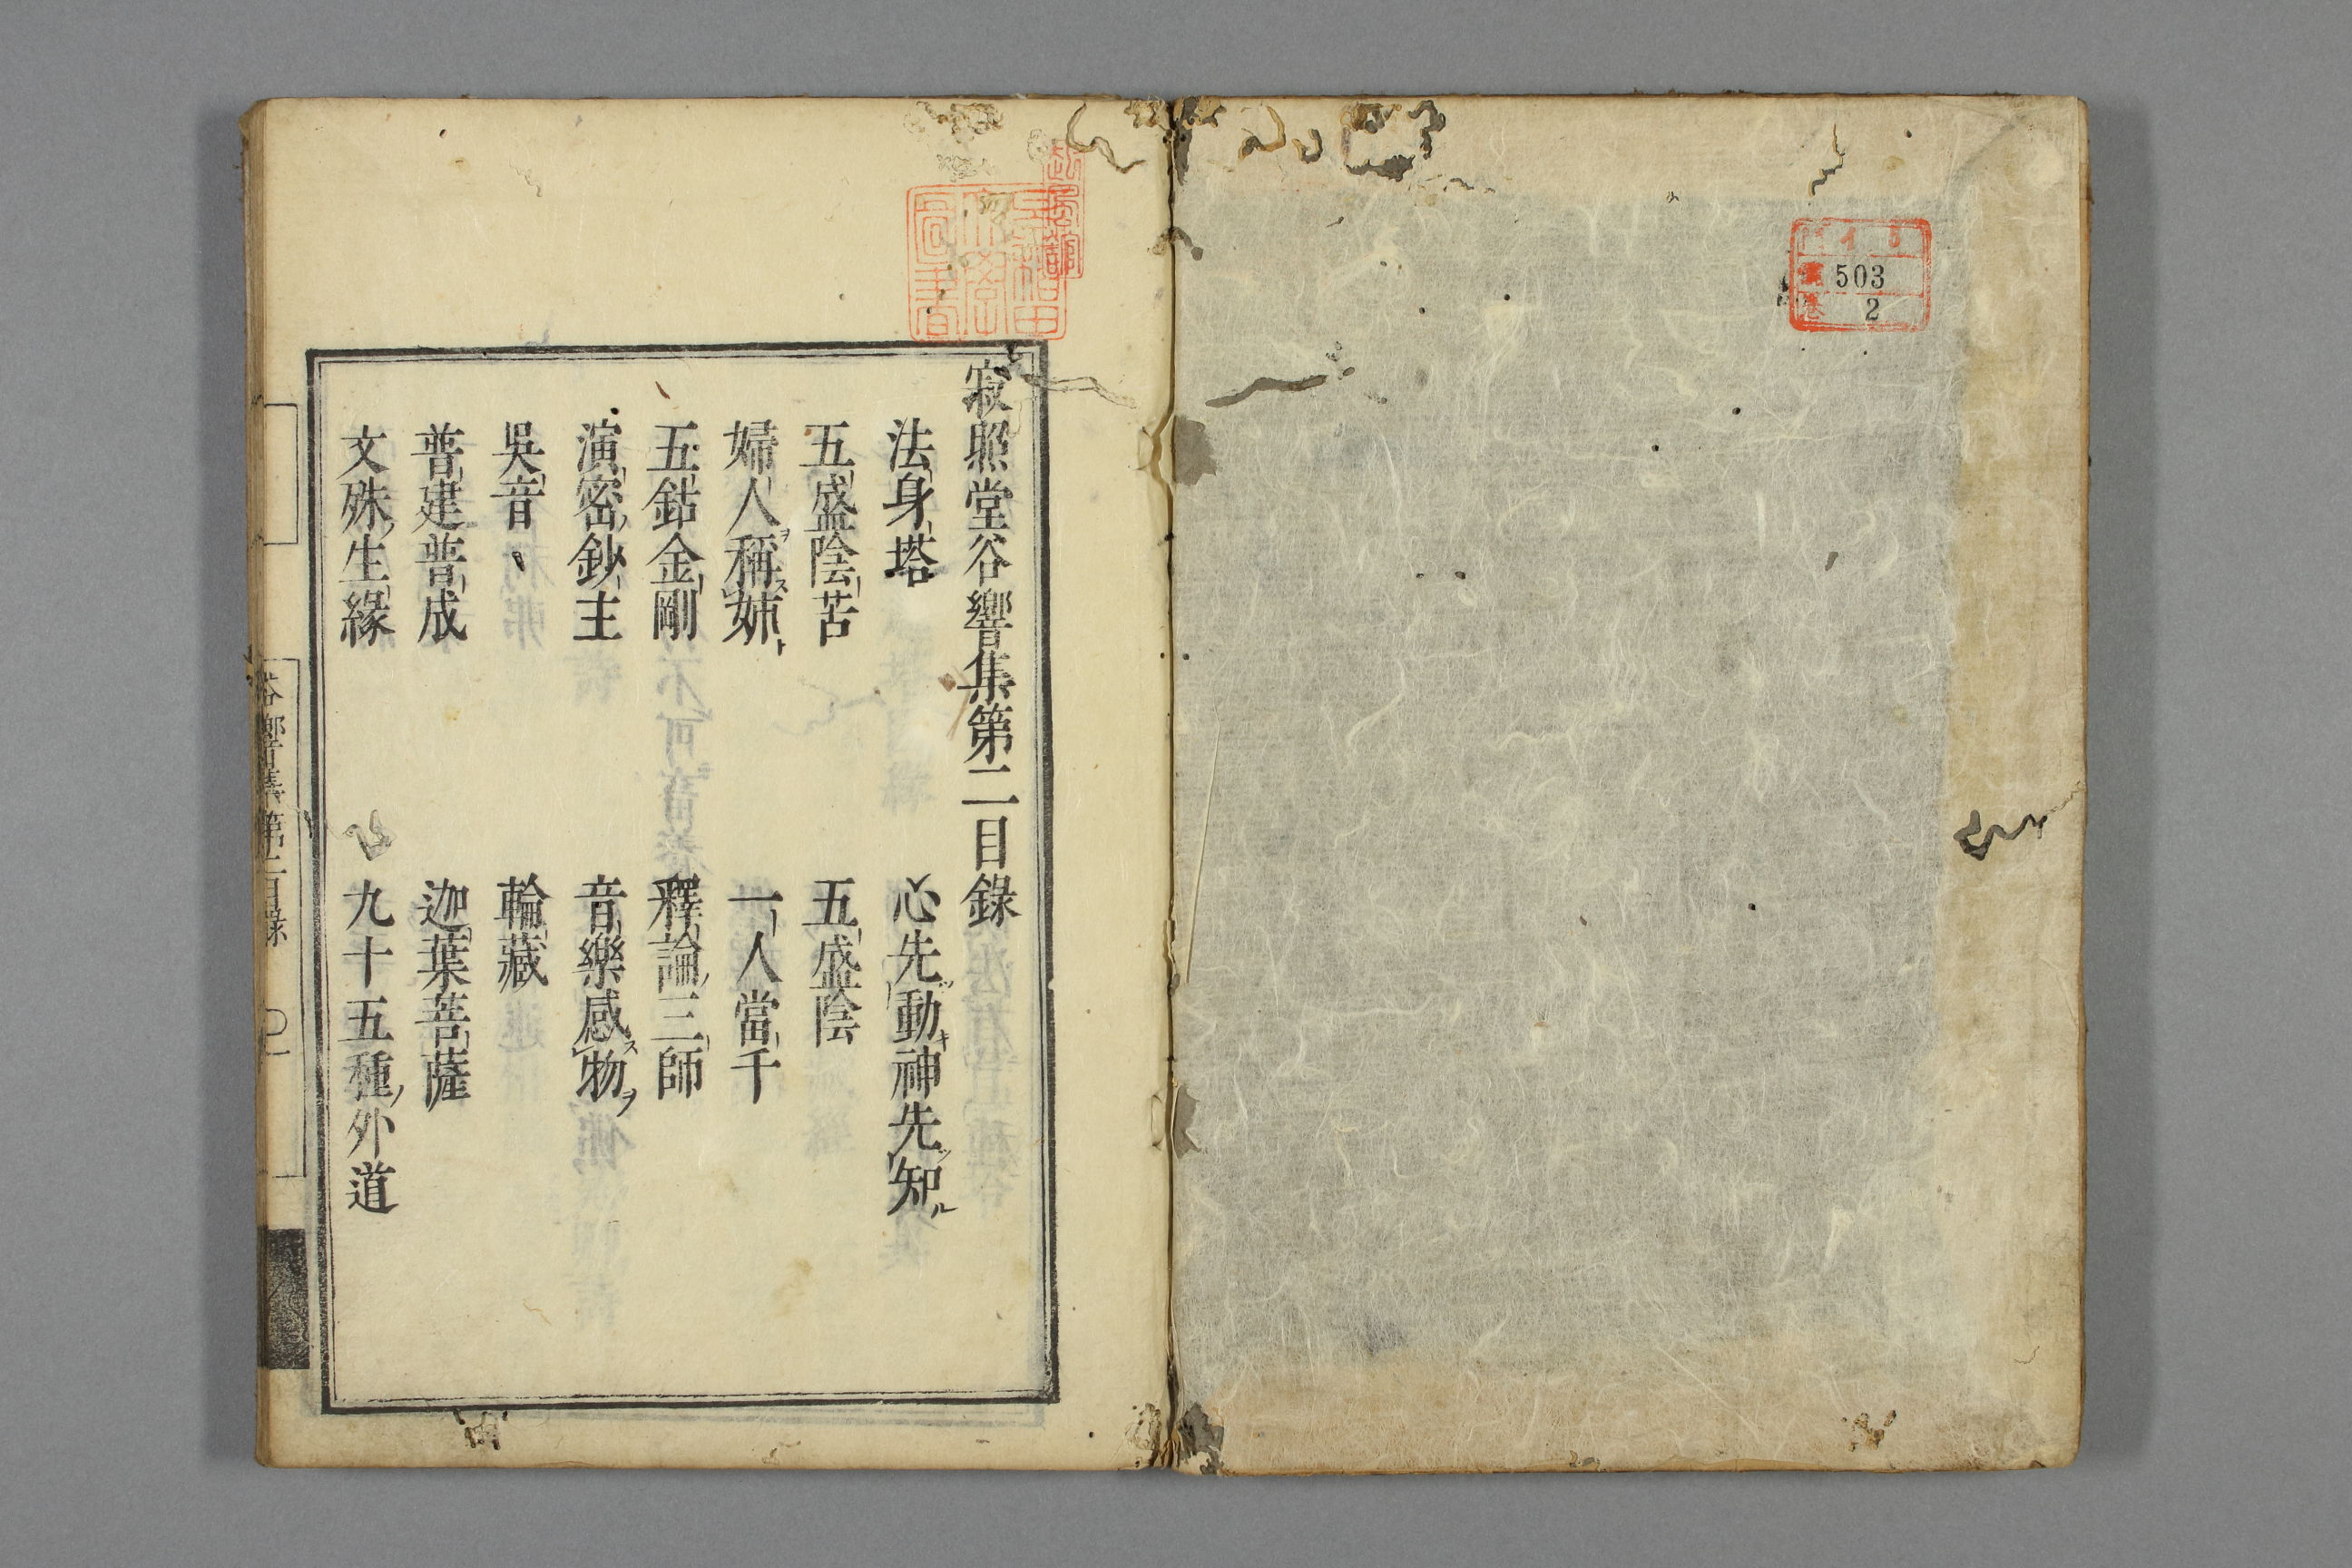 503
2
寂照堂谷響集第二目錄
法身塔
心先動神先知
五盛陰苦
五盛陰
婦人稱姉
一人當千
五鈷金剛
釋論三師
演密鈔主
音樂感物
吳音
輪藏
普建普成
迦葉菩薩
文殊生緣
九十五種外道
谷響集第二目錄
早稲田大學圖書